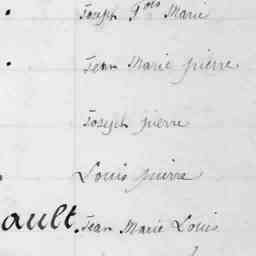 Joseph Gois Marie
Jean Marie pierre
Joseph pierre
Louis pierre
ault. Jean Marie Louis